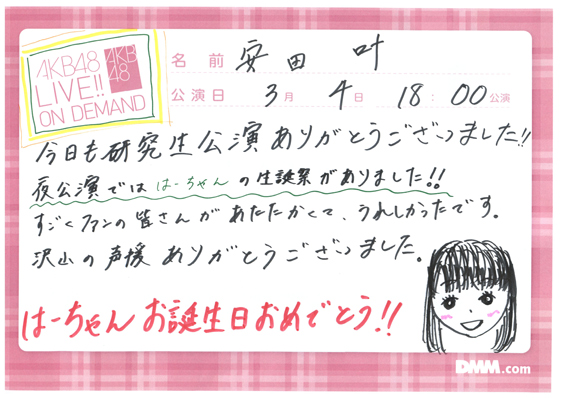 AKB48
LIVE!!
ON DEMAND
AKB
48
名前 安田 叶
公演日 3月 4日 18:00公演
今日も研究生公演ありがとうございました!!
夜公演では はーちゃん の生誕祭がありました!!
すごくファンの皆さんがあたたかくて、うれしかったです。
沢山の声援ありがとうございました。
はーちゃん お誕生日おめでとう!!
DMM.com